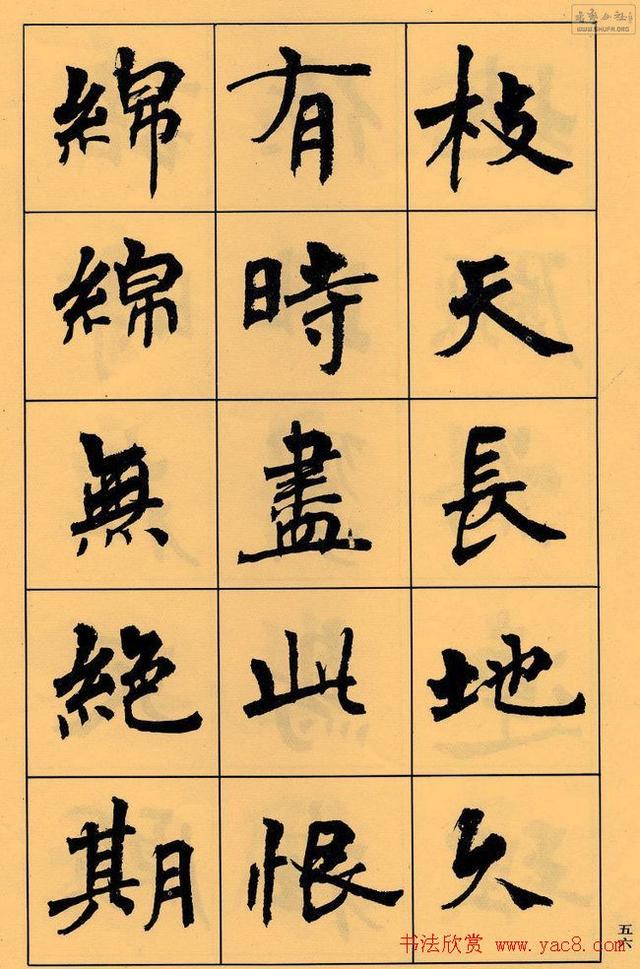 枝天長地久
有時盡此恨
綿綿無絕期
五六
书法欣赏 www.yac8.com
WWW.SHUFA.ORG